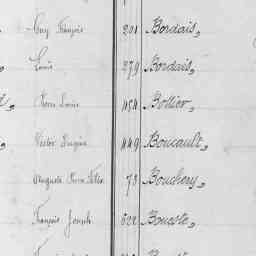 François 201 Bordais,
Louis 279 Bordais,
Pierre Louis 454 Bollier,
Victor Eugène 449 Boucault,
Auguste Pierre Félix 73 Bouchery,
François Joseph 622 Boueste,